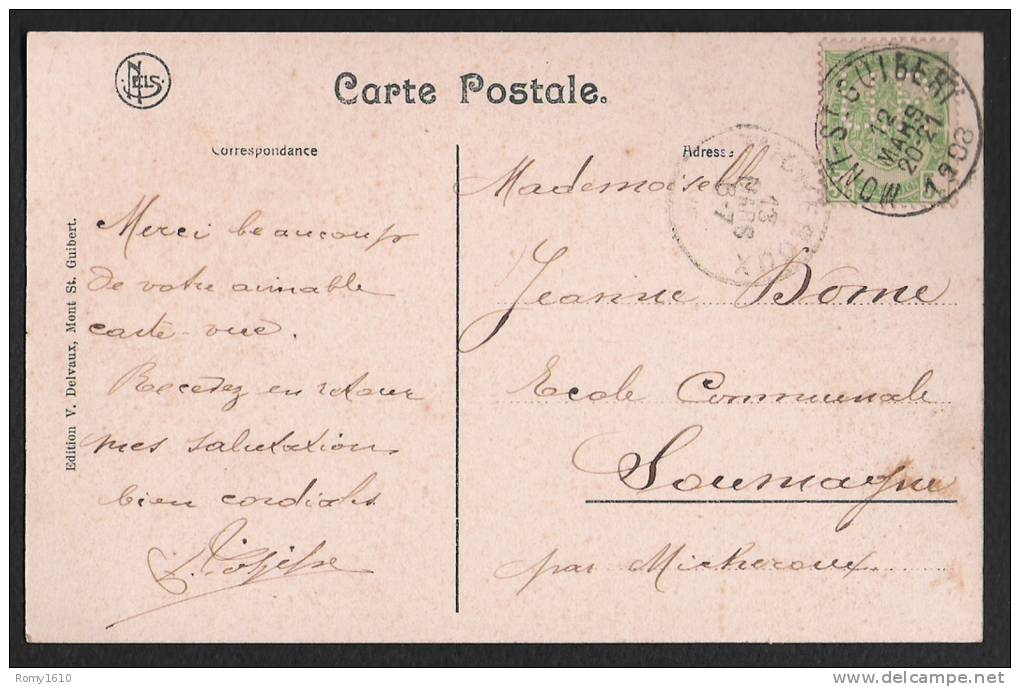 NELS
Carte Postale.
Correspondance
Adresse
MONT-ST-GUIBERT
12
MARS
20-21
1908
13
MARS
6-7
Edition V. Delvaux, Mont St. Guibert.
Merci beaucoup
de votre aimable
carte-vue.
Recevez en retour
mes salutations
bien cordiales
Mademoiselle
Jeanne Dome
Ecole Communale
Soumagne
par Micheroux
Romy1610
delcampe.net